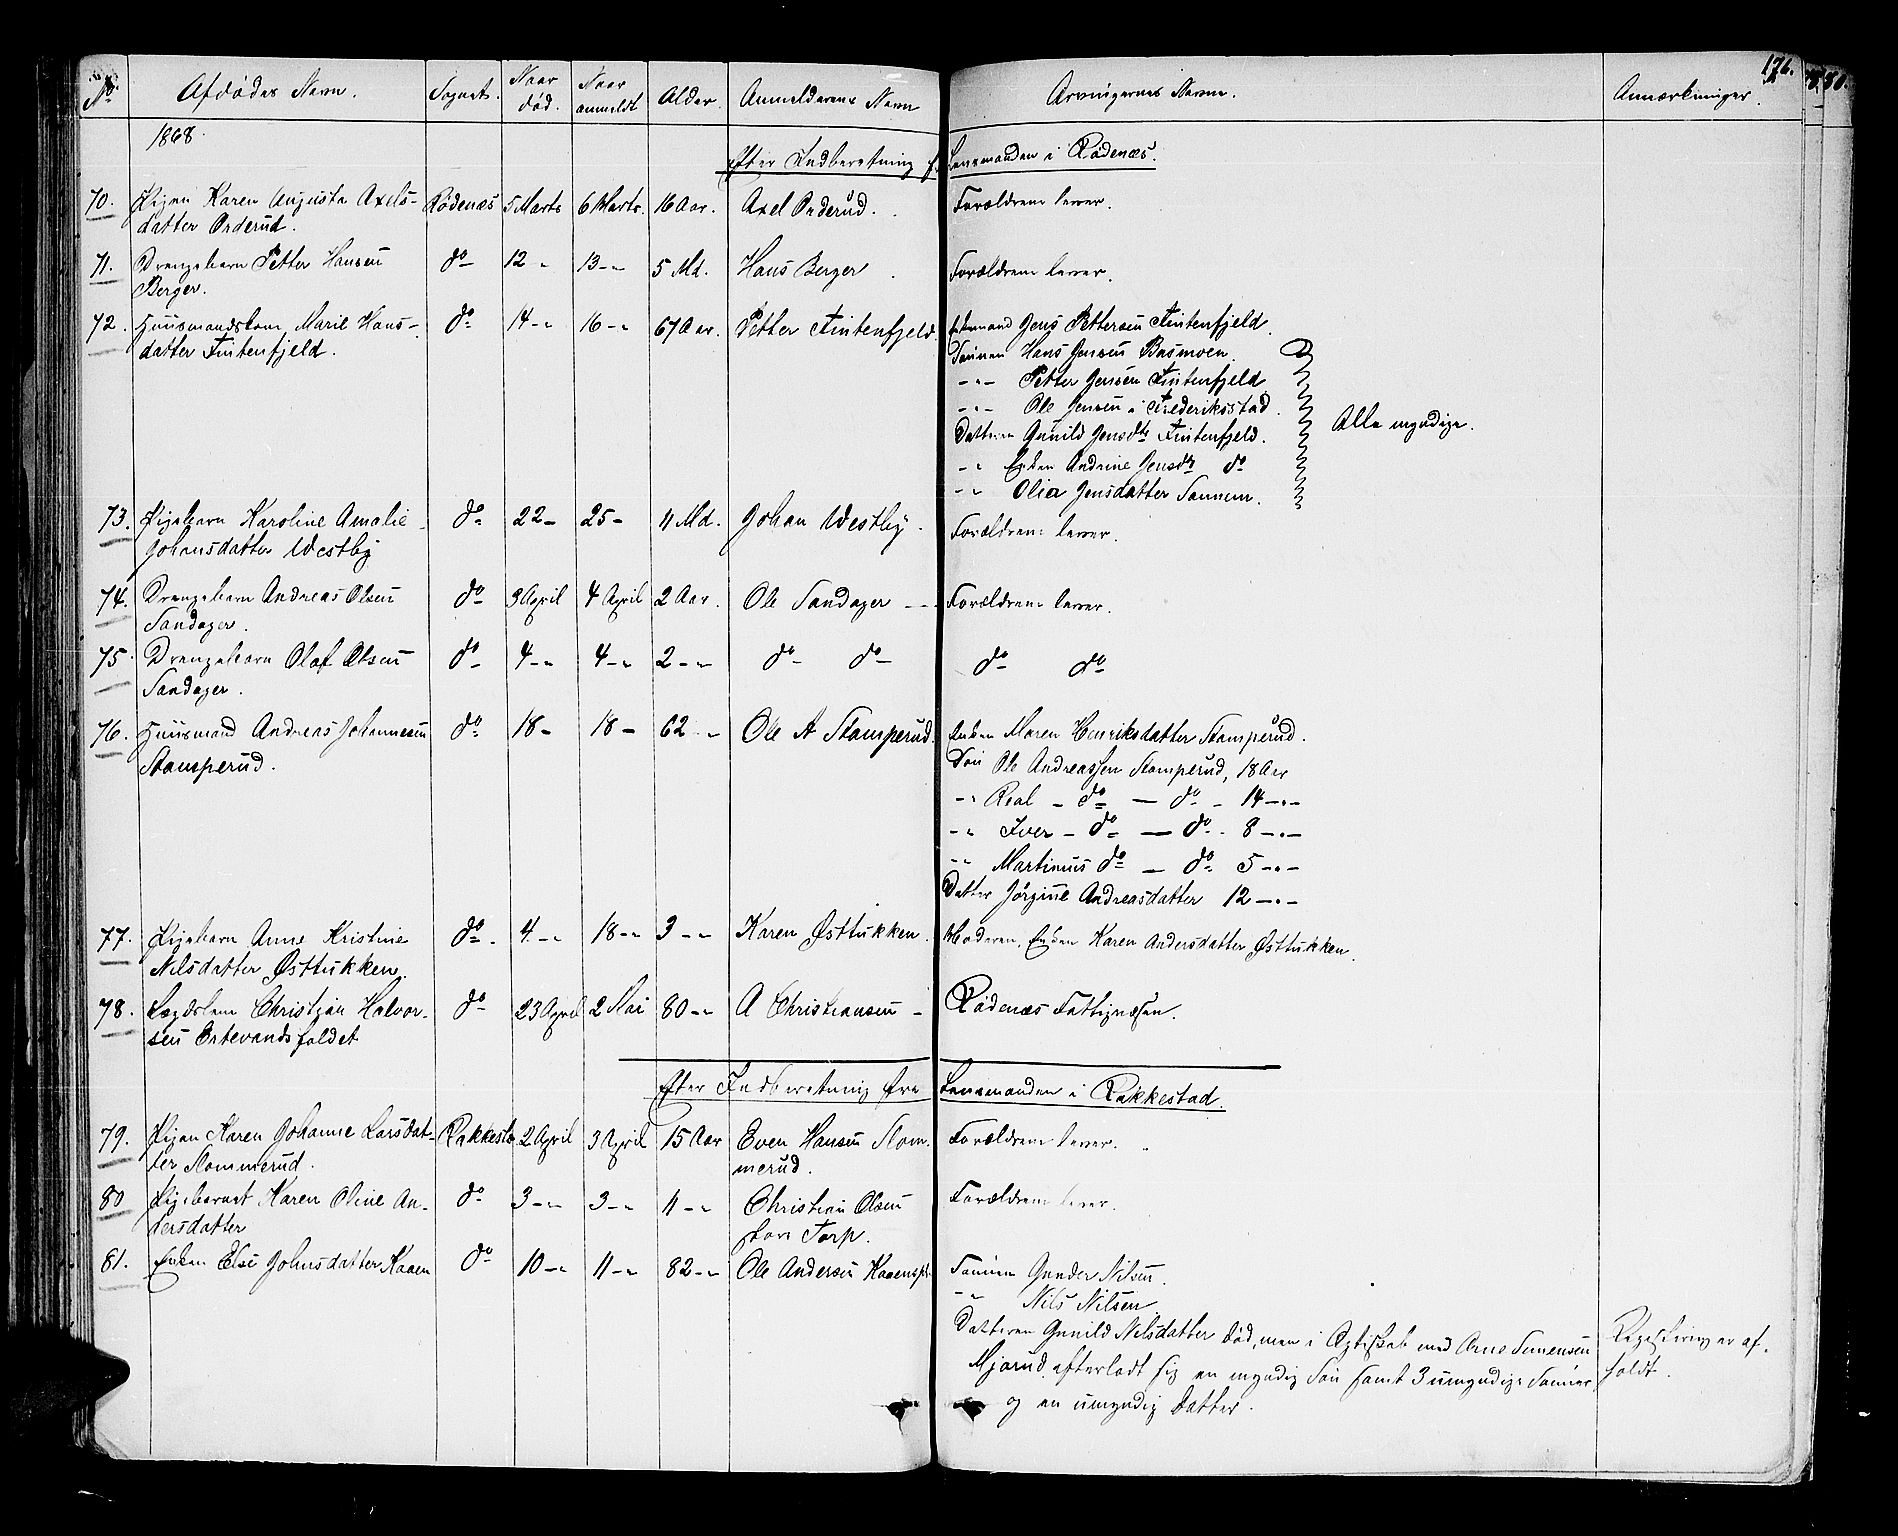 126.
No. Afdødes Navn. Sognet. Naar død. Naar anmeldt Alder. Anmelderens Navn Arvingernes Navne. Anmærkninger.
1868.
Efter Indberetning fra Lensmanden i Rødenæs.
70. Pigen Karen Augusta Axels- Rødenæs 5 Marts 6 Marts. 16 Aar. Axel Orderud. Forældrene lever.
datter Orderud.
71. Drengebarn Petter Hansen do 12 " 13 - " 5 Md. Hans Berger Forældrene lever.
Berger.
72. Huusmandskone Marie Hans- do 14 - " 16 - " 67 Aar. Petter Fintenfjeld. Enkemand Jens Pettersen Fintenfjeld.
datter Fintenfjeld. Sønnen Hans Jensen Basmoen.
- " - Petter Jensen Fintenfjeld
- " - Ole Jensen i Frederiksstad. Alle myndige.
Datteren Gunild Jensdtr Fintenfjeld.
- " Enken Andrine Jensdtr do
- " Olia Jensdatter Sannem.
73. Pigebarn Karoline Amalie do 22 - 25 - 11 Md. Johan Westby. Forældrene lever.
Johansdatter Westby
74. Drengebarn Andreas Olsen do 3 April 4 April 2 Aar. Ole Sandager - - Forældrene lever.
Sandager.
75. Drengebarn Olaf Olsen do 4 - " 4 - " 2 - " do do do do
Sandager.
76. Huusmand Andreas Johannesen do 18 - 18 - 62 - " Ole A Stamperud. Enken Maren Henriksdatter Stamperud.
Stamperud. Søn Ole Andreassen Stamperud, 18 Aar
- " Real - do - do - 14 - " -
- " Iver - do - do - 8 - " -
- " Martinus do - do 5 - " -
Datter Jørgine Andreasdatter 12 - " -
77. Pigebarn Anne Kristine do - 4 - " 18 - " 3 - " Karen Østtukken. Moderen, Enken Karen Andersdatter Østtukken.
Nilsdatter Østtukken.
78. Lægdslem Christian Halvor- do 23 April 2 Mai 80 - " A Christiansen - Rødenæs Fattigvæsen.
sen Ertevandsfaldet
Efter Indberetning fra Lensmanden i Rakkestad.
79. Pigen Karen Johanne Larsdat- Rakkesta 2 April 3 April 15 Aar Even Hansen Slom- Forældrene lever.
ter Slommerud. merud.
80 Pigebarnet Karen Oline An- do 3 - " 3 - " 11 - " Christian Olsen Forældrene lever.
dersdatter Torp.
81. Enken Else Johnsdatter Kaaen do 10 - " 11 - " 82 - " Ole Andersen Sønnen Gunder Nilsen.
- " Nils Nilsen
Datteren Gunild Nilsdatter død, men i Ægteskab med Arne Simensen Registrering er af-
Mjørud efterladt sig en myndig Søn samt 3 umyndige Sønner faldt.
og en umyndig Datter.